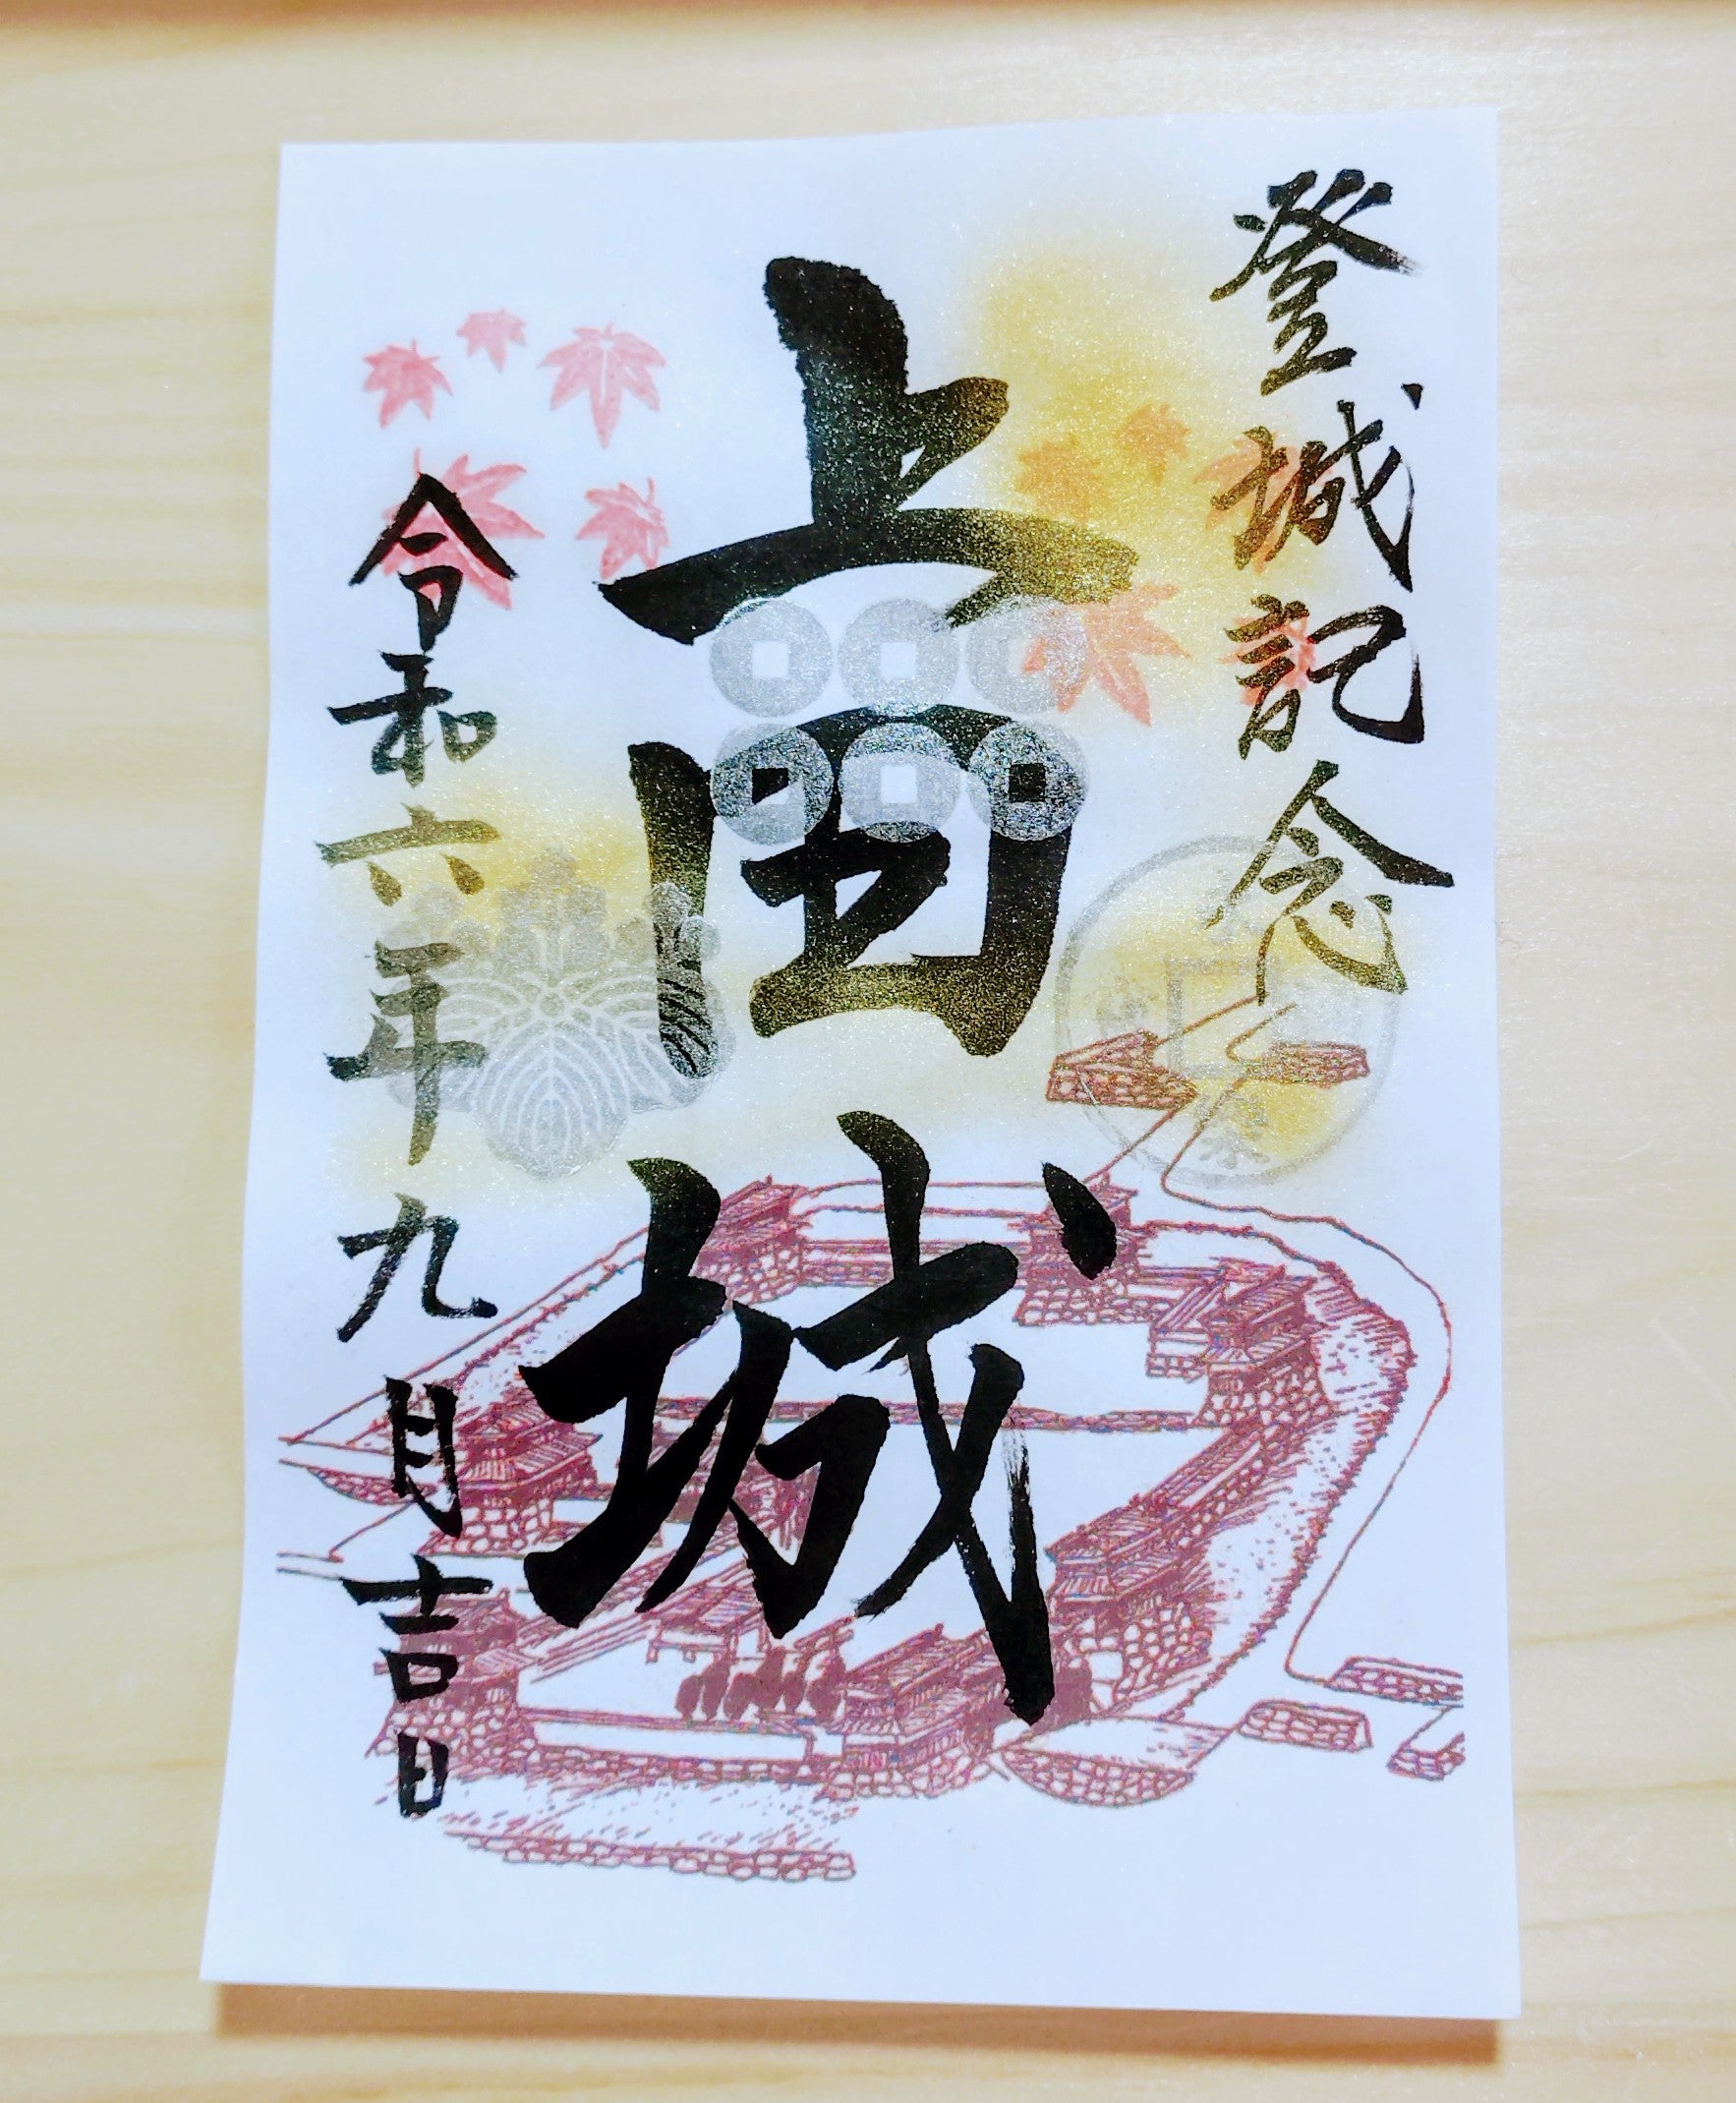 登城記念
上田城
令和六年九月吉日